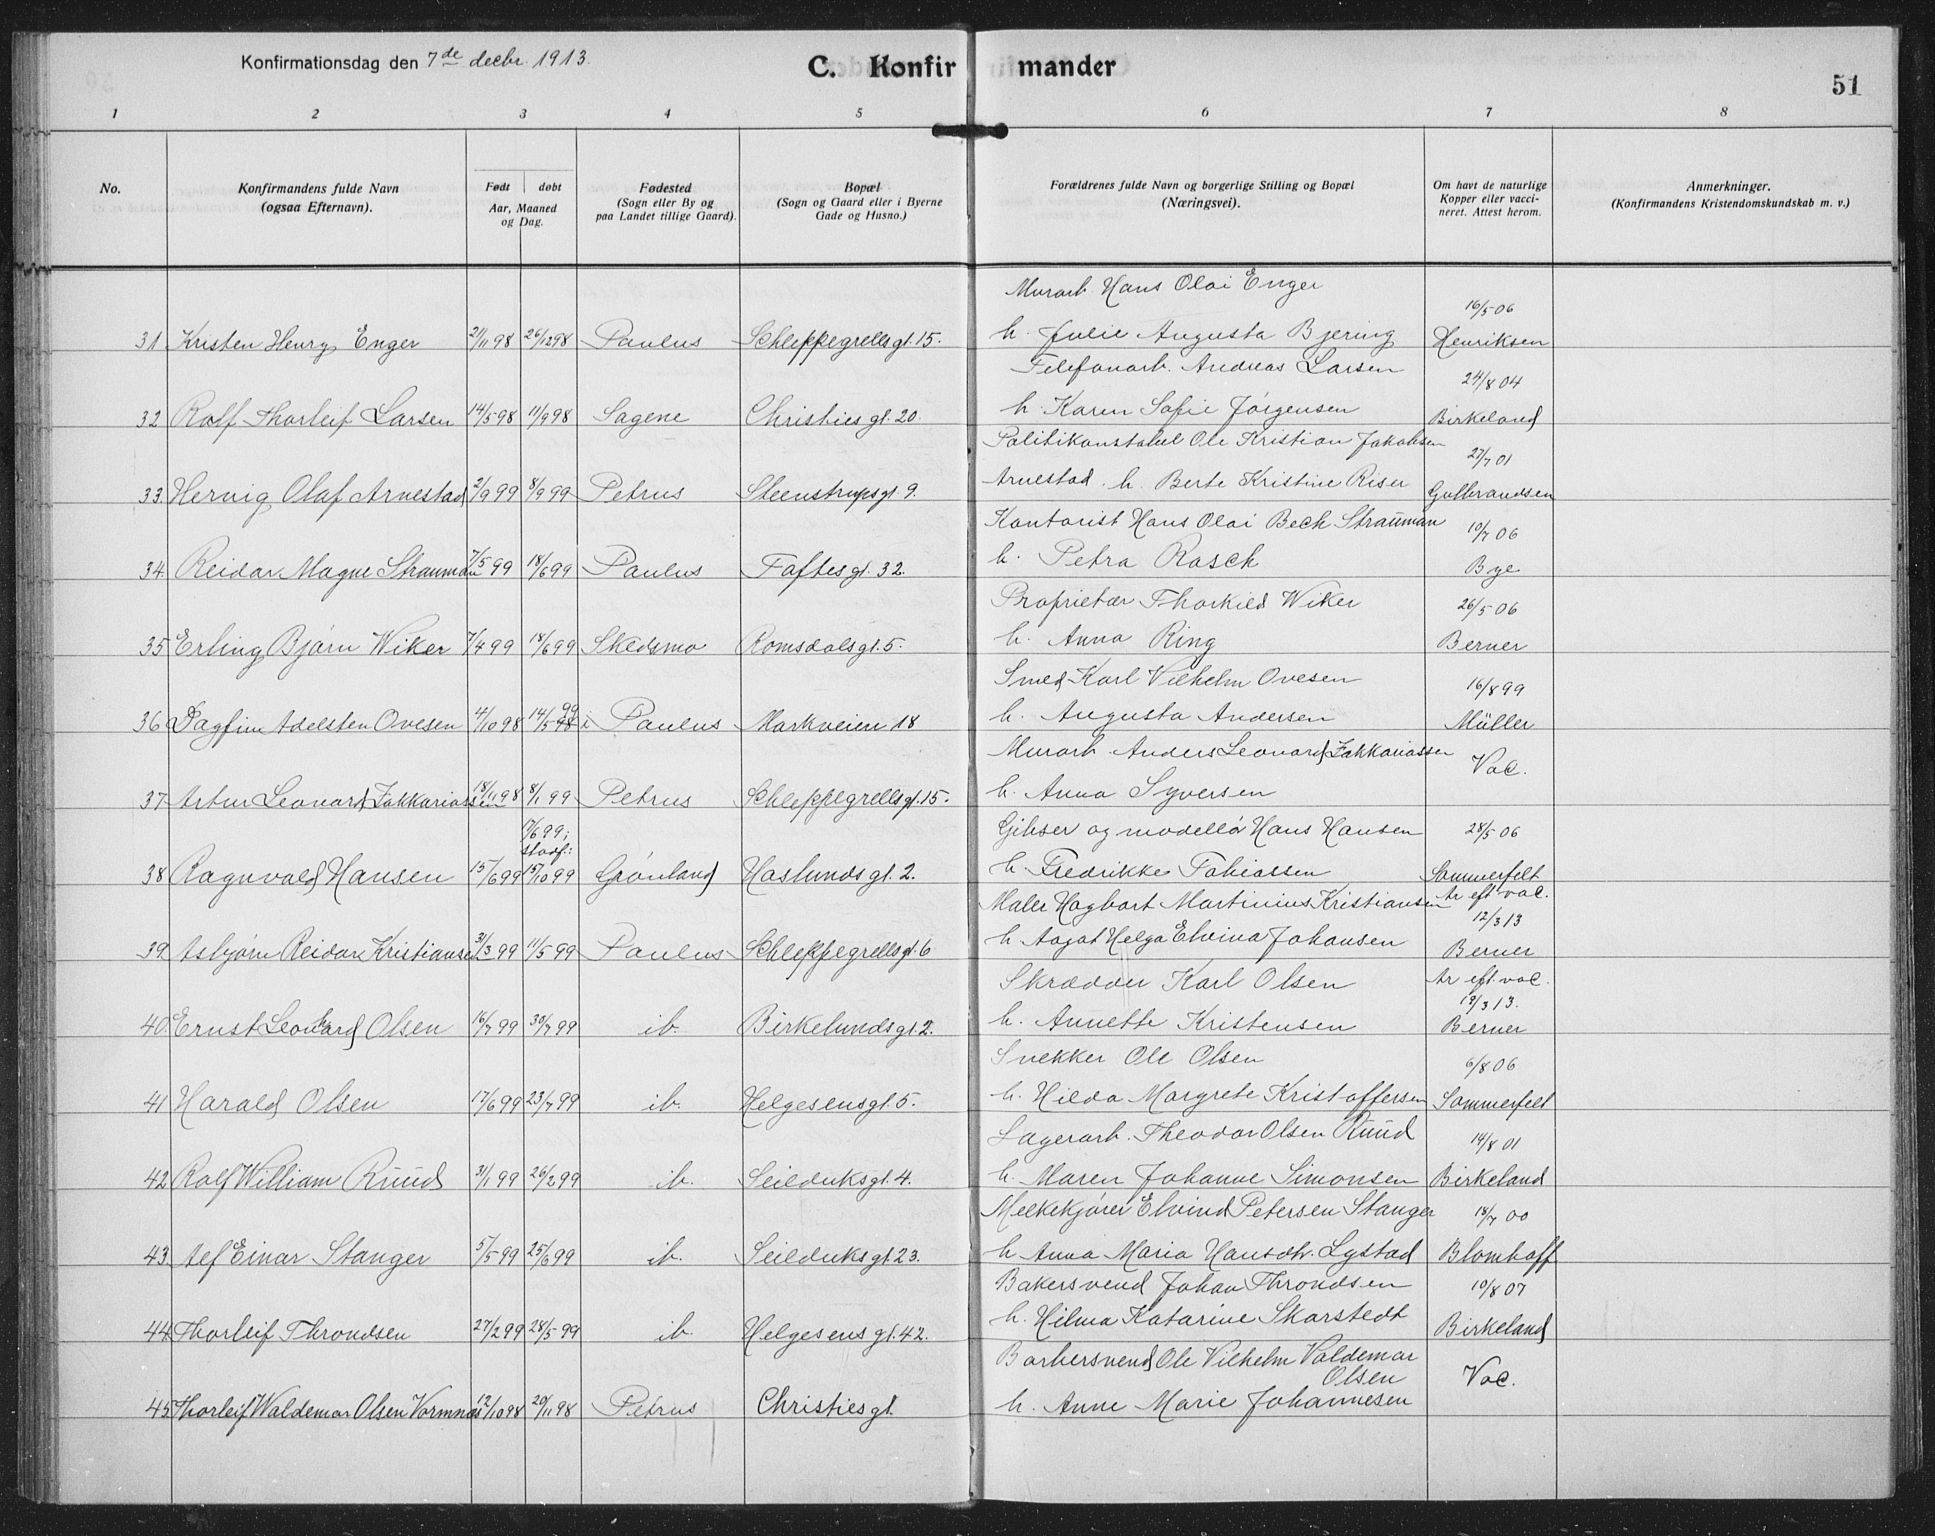 Konfirmationsdag den 7de decbr. 1913.
C. Konfirmander
51
1 2 3 4 5 6 7 8
No.
Konfirmandens fulde Navn
(ogsaa Efternavn).
Født døbt
Aar, Maaned
og Dag.
Fødested
(Sogn eller By og
paa Landet tillige Gaard).
Bopæl
(Sogn og Gaard eller i Byerne
Gade og Husno.)
Forældrenes fulde Navn og borgerlige Stilling og Bopæl
(Næringsvei).
Om havt de naturlige
Kopper eller vacci-
neret. Attest herom.
Anmerkninger.
(Konfirmandens Kristendomskundskab m. v.)
Murarb Hans Olai Enger 16/5 06
31 Kristen Henry Enger 21/11 98 26/12 98 Paulus Schleppegrellsgt. 15. h. Julie Augusta Bjering Henriksen
Telefonarb. Andreas Larsen 24/8 04
32 Rolf Thorleif Larsen 14/5 98 11/9 98 Sagene Christiesgt. 20. h. Karen Sofie Jørgensen Birkeland
Politikonstabel Ole Kristian Jakobsen 27/7 01
33. Hervig Olaf Arnestad 2/9 99 8/9 99 Petrus Steenstrupsgt. 9. Arnestad. h. Berte Kristine Riser Gulbrandsen
Kontorist Hans Olai Beck Strauman 10/7 06
34. Reidar Magne Strauman 7/5 99 18/6 99 Paulus Toftesgt. 32. h. Petra Rasch Bye
Proprietær Thorkild Wiker 26/5 06
35 Erling Bjørn Wiker 7/4 99 18/6 99 Skedsmo Romsdalsgt. 5. h. Anna Ring Berner
Smed Karl Vilhelm Ovesen 16/8 99
36 Dagfinn Adelsten Ovesen 4/10 98 14/5 99 i Paulus Markveien 18 h. Augusta Andersen Müller
Murarb. Anders Leonard Zakkariassen Vac.
37 Artur Leonard Zakkariassen 18/11 98 8/1 99 Petrus Schleppegrellsgt. 15. h. Anna Syversen
7/6 99; stadf.: Gibser og modellør Hans Hansen 28/5 06
38 Ragnvald Hansen 15/6 99 15/10 99 Grønland Haslundsgt. 2. h. Fredrikke Tobiassen Sommerfelt
Maler Hagbart Martinius Kristiansen Ar eft. vac. 12/3 13
39. Asbjørn Reidar Kristiansen 31/3 99 11/5 99 Paulus Schleppegrellsgt. 6 h. Aagot Helga Elvina Johansen Berner
Skrædder Karl Olsen Ar eft. vac. 12/3 13.
40. Ernst Leonard Olsen 16/7 99 30/7 99 ib. Birkelundsgt. 2. h. Annette Kristensen Berner
Snekker Ole Olsen 6/8 06
41 Harald Olsen 17/6 99 23/7 99 ib. Helgesensgt. 5. h. Hilda Margrete Kristoffersen Sommerfelt
Lagerarb. Theodor Olsen Ruud 14/8 01
42 Rolf William Ruud 31/1 99 26/2 99 ib. Seilduksgt. 4. h. Maren Johanne Simonsen Birkeland
Melkekjører Elvind Petersen Stanger 18/7 00
43. Alf Einar Stanger 5/5 99 25/6 99 ib. Seilduksgt. 23. h. Anna Maria Hansdtr. Lystad Blomhoff
Bakersvend Johan Throndsen 10/8 07
44. Thorleif Throndsen 27/2 99 28/5 99 ib. Helgesensgt. 42. h. Hilma Katarine Skarstedt Birkeland
Barbersvend Ole Vilhelm Valdemar
Olsen Vac.
45 Thorleif Waldemar Olsen Vormnæs 12/10 98 20/11 98 Petrus Christiesgt. h. Anne Marie Johannesen